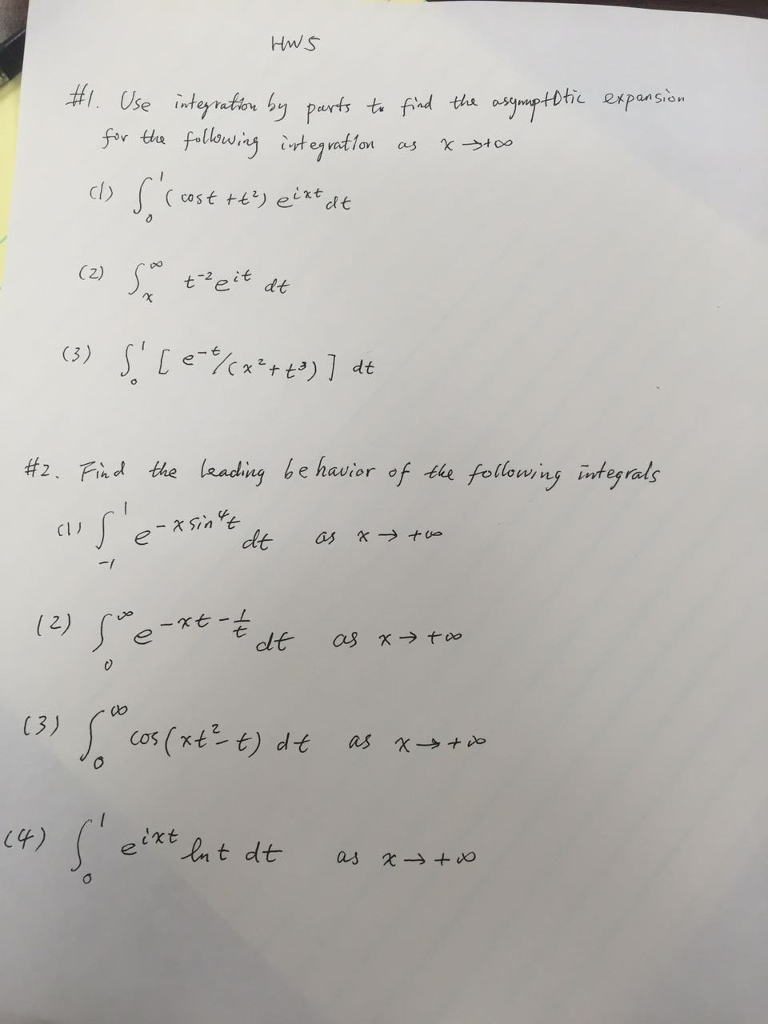 HW5
#1. Use integration by parts to find the asymptotic expansion
for the following integration as x → +∞
(1) ∫₀¹ (cost + t²) e^{ixt} dt
(2) ∫ₓ^∞ t⁻² e^{it} dt
(3) ∫₀¹ [e^{-t}/(x² + t³)] dt
#2. Find the leading behavior of the following integrals
(1) ∫₋₁¹ e^{-x sin⁴t} dt as x → +∞
(2) ∫₀^∞ e^{-xt - 1/t} dt as x → +∞
(3) ∫₀^∞ cos(xt² - t) dt as x → +∞
(4) ∫₀¹ e^{ixt} ln t dt as x → +∞